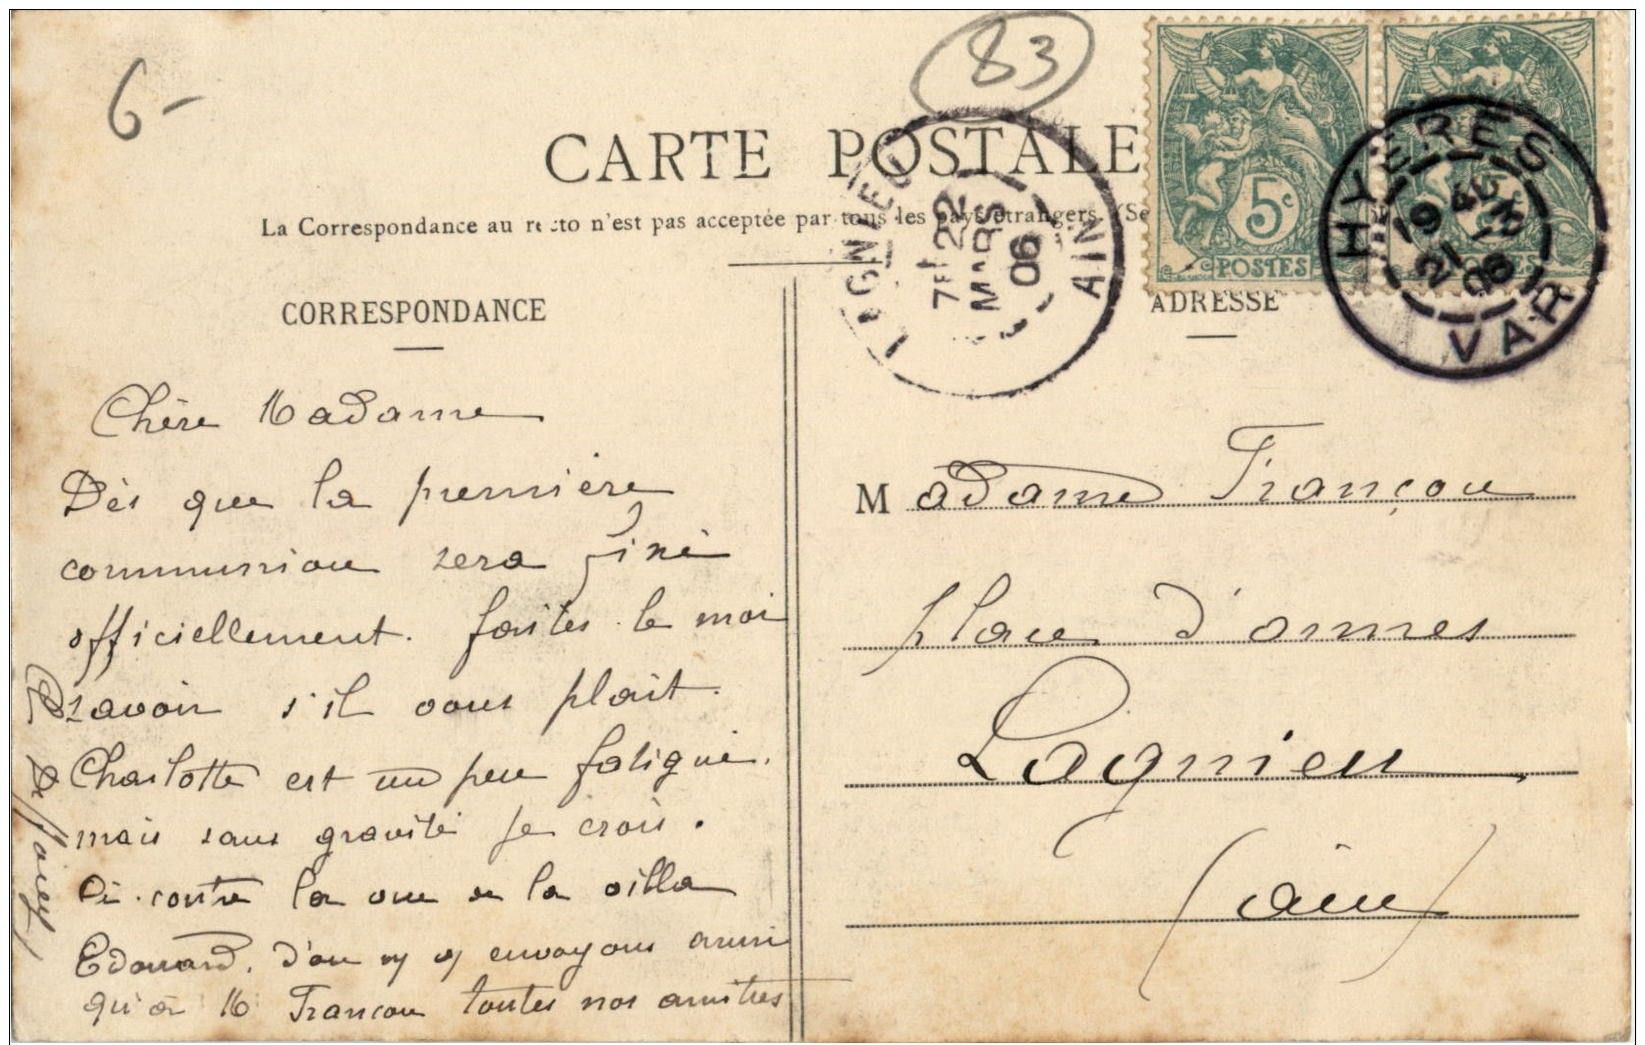 6-
83
CARTE POSTALE
La Correspondance au recto n'est pas acceptée par tous les pays étrangers. (Se
CORRESPONDANCE
ADRESSE
LAGNIEU
7E 22
MARS
06
AIN
5c
POSTES
HYERES
19 45
21 -3
06
VAR
Chère Madame
Dès que la première
communion sera fixé
officiellement. faites-le moi
savoir s'il vous plait.
Charlotte est un peu fatiguée.
mais sans gravité je crois.
Ci-contre la vue de la villa
Edouard. d'où n/ v/ envoyons ainsi
qu'à M Françon toutes nos amitiés
Madame Françon
place d'armes
Lagnieu
(ain)